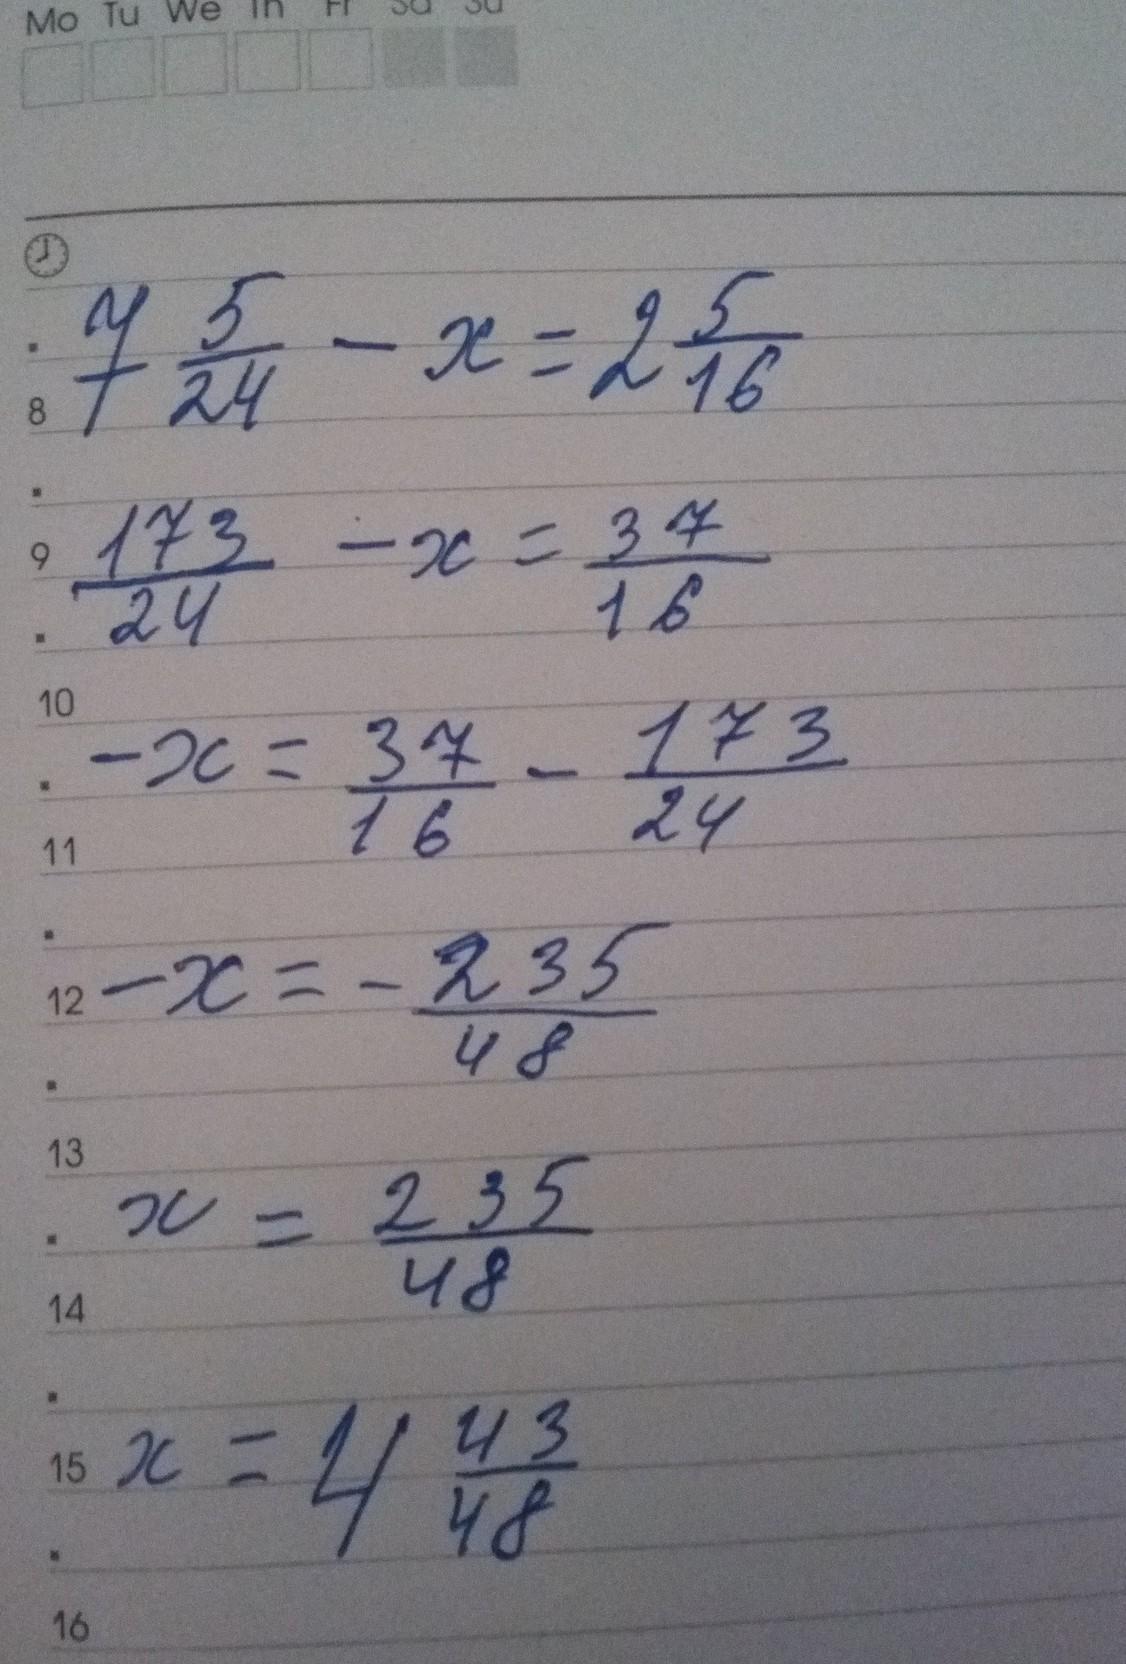 Mo Tu We Th Fr Sa Su
7 5/24 - x = 2 5/16
8
9 173/24 - x = 37/16
10
-x = 37/16 - 173/24
11
12 -x = - 235/48
13
x = 235/48
14
15 x = 4 43/48
16